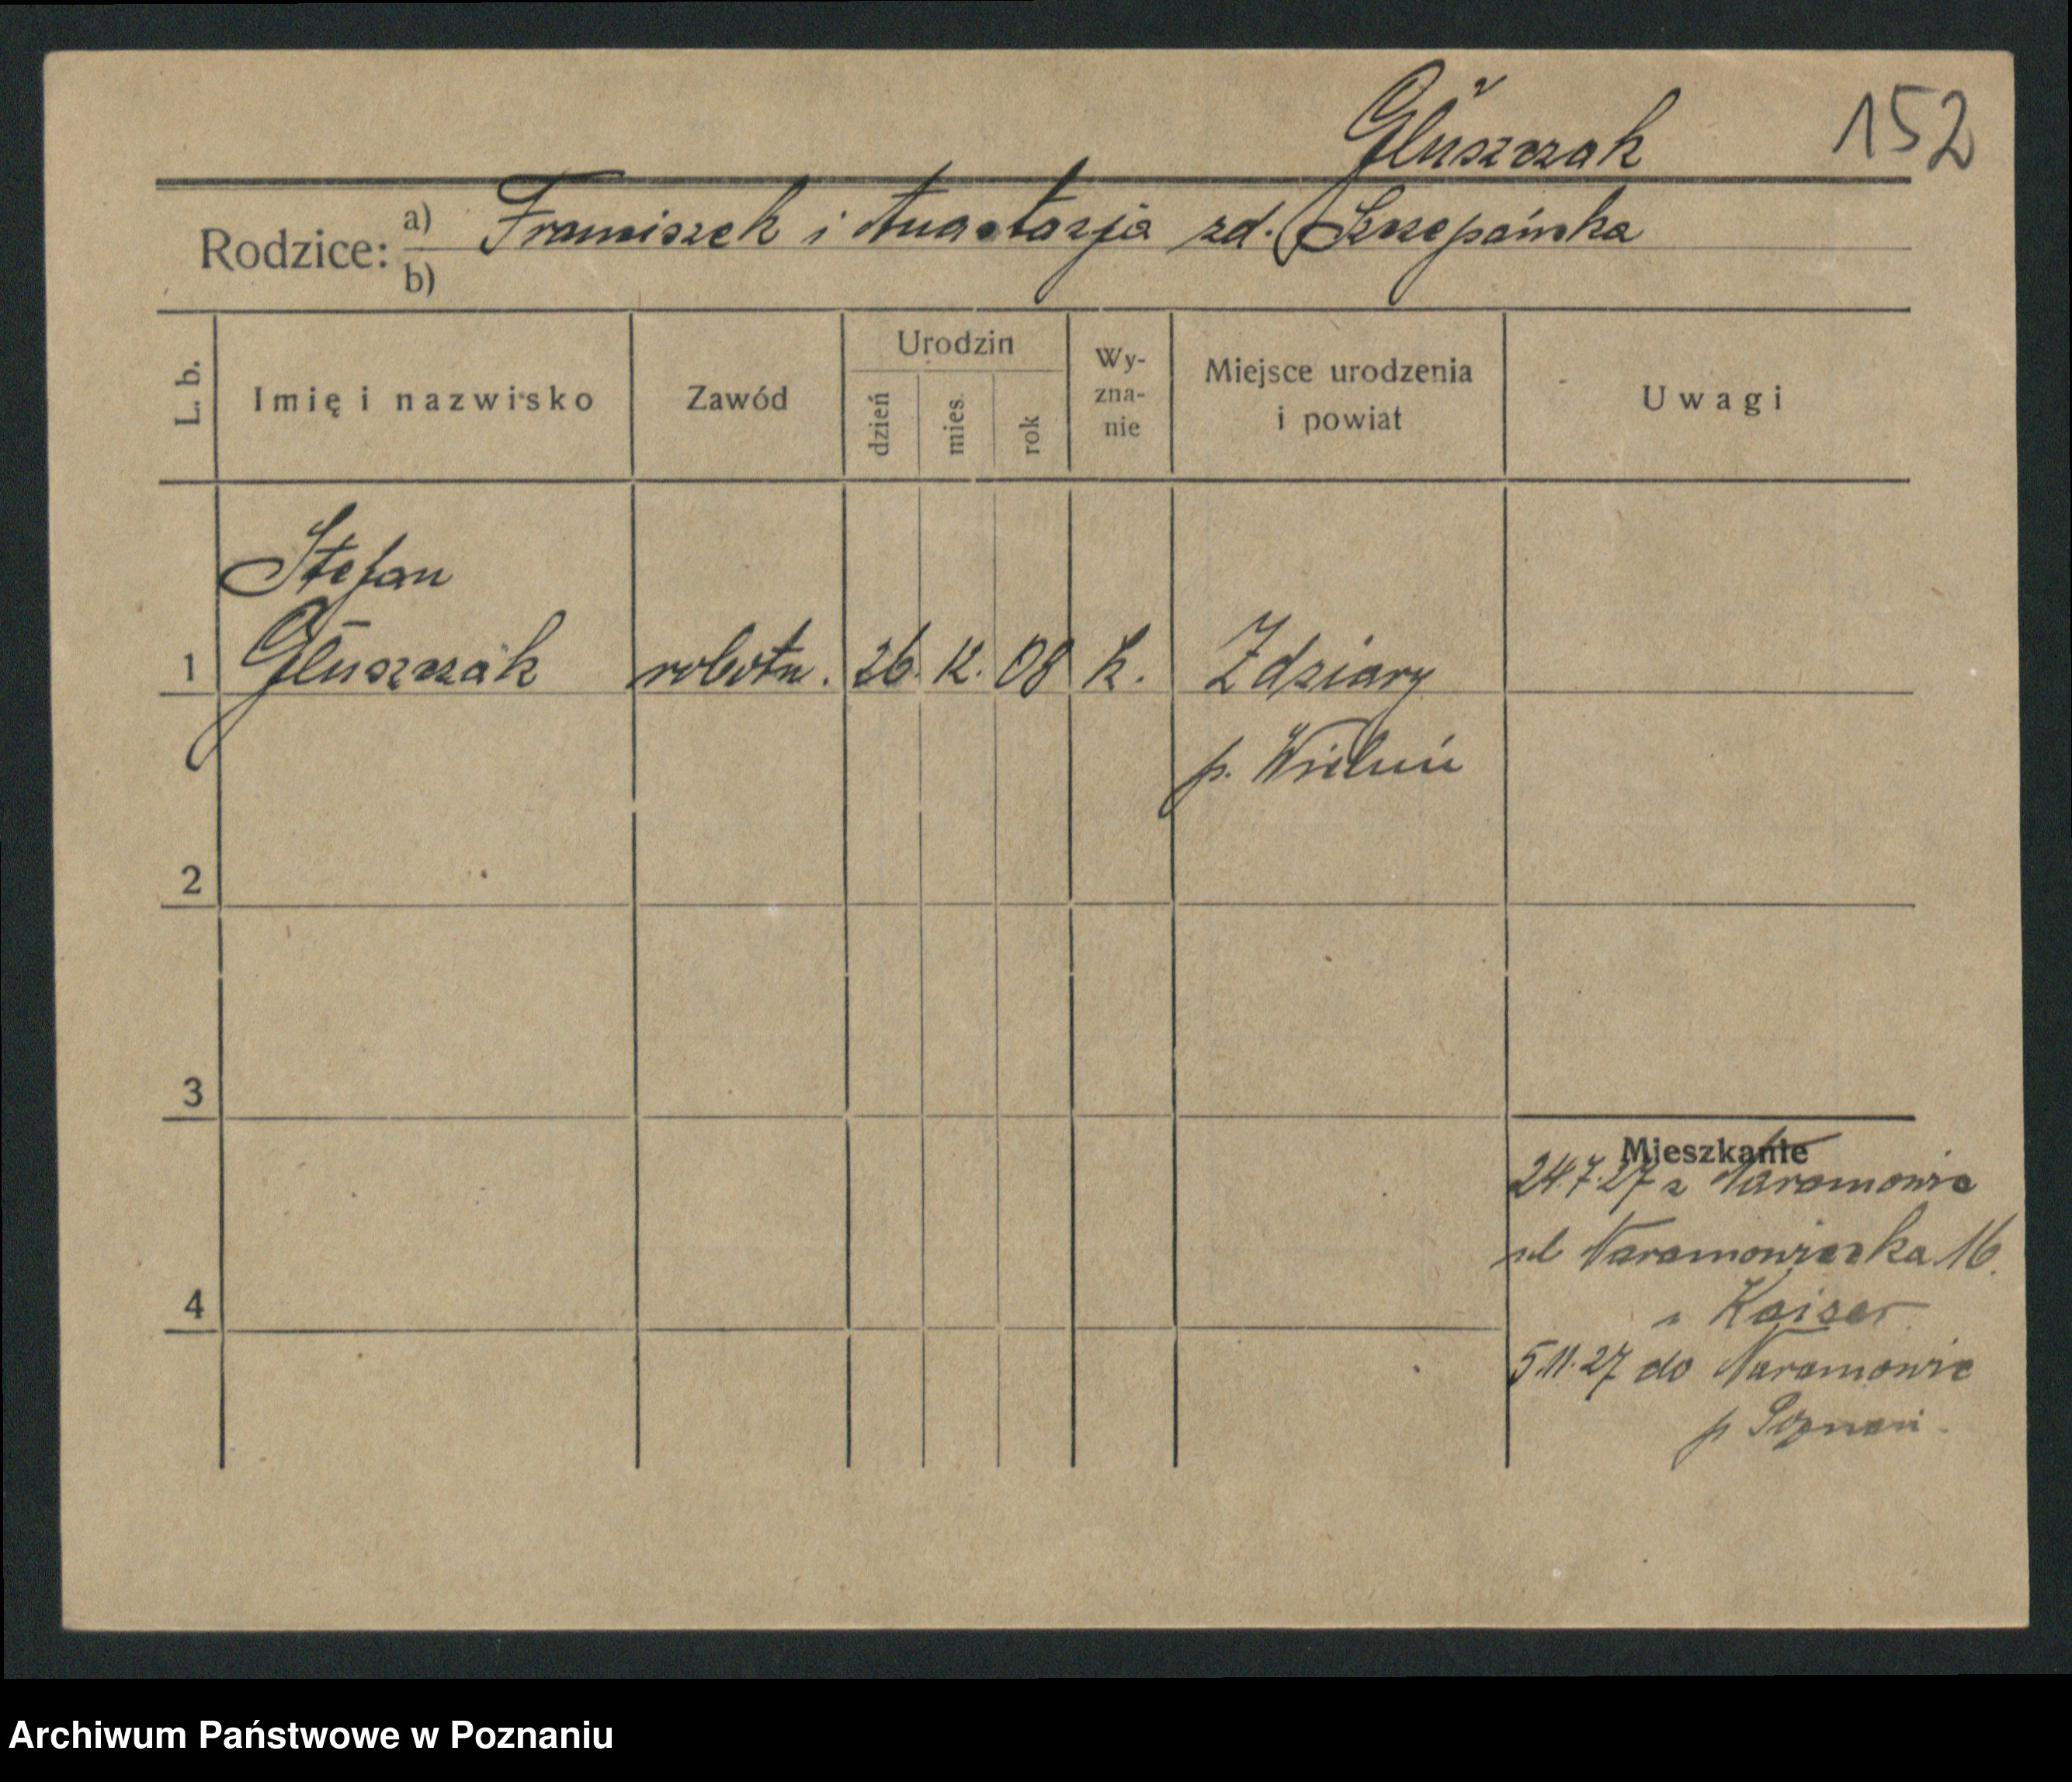 Głuszczak 152
Rodzice: a) Franciszek i Anastazja zd. Szczepańska
b)
L. b. Imię i nazwisko Zawód Urodzin dzień mies. rok Wy-zna-nie Miejsce urodzenia i powiat Uwagi
Stefan
1 Głuszczak robotn. 26. 12. 08 k. Zdziary
p. Wieluń
2
3
Mieszkanie
24.7.27 z Naramowic
ul Naramowicka 16.
Kaiser
4
5.11.27 do Naramowic
p Poznań.
Archiwum Państwowe w Poznaniu